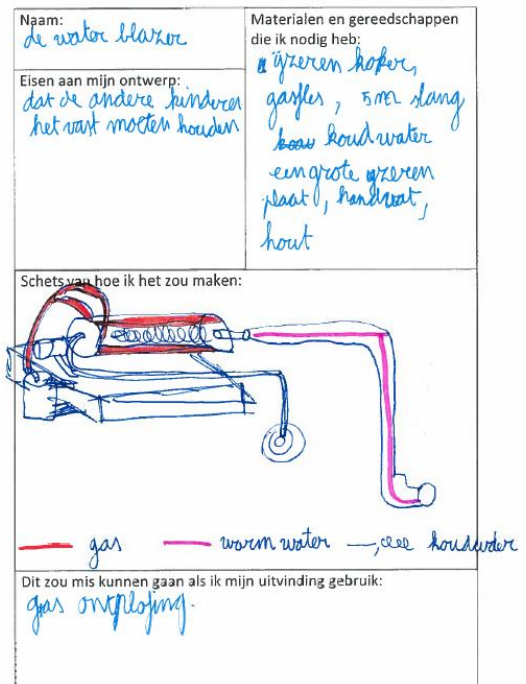 Naam:
de water blazer
Eisen aan mijn ontwerp:
dat de andere kinderen
het vast moeten houden
Materialen en gereedschappen
die ik nodig heb:
yzeren koker,
gasfles, 5m slang
koud water
een grote yzeren
plaat, handvat,
hout
Schets van hoe ik het zou maken:
gas
warm water
koudwder
Dit zou mis kunnen gaan als ik mijn uitvinding gebruik:
gas ontplofing.